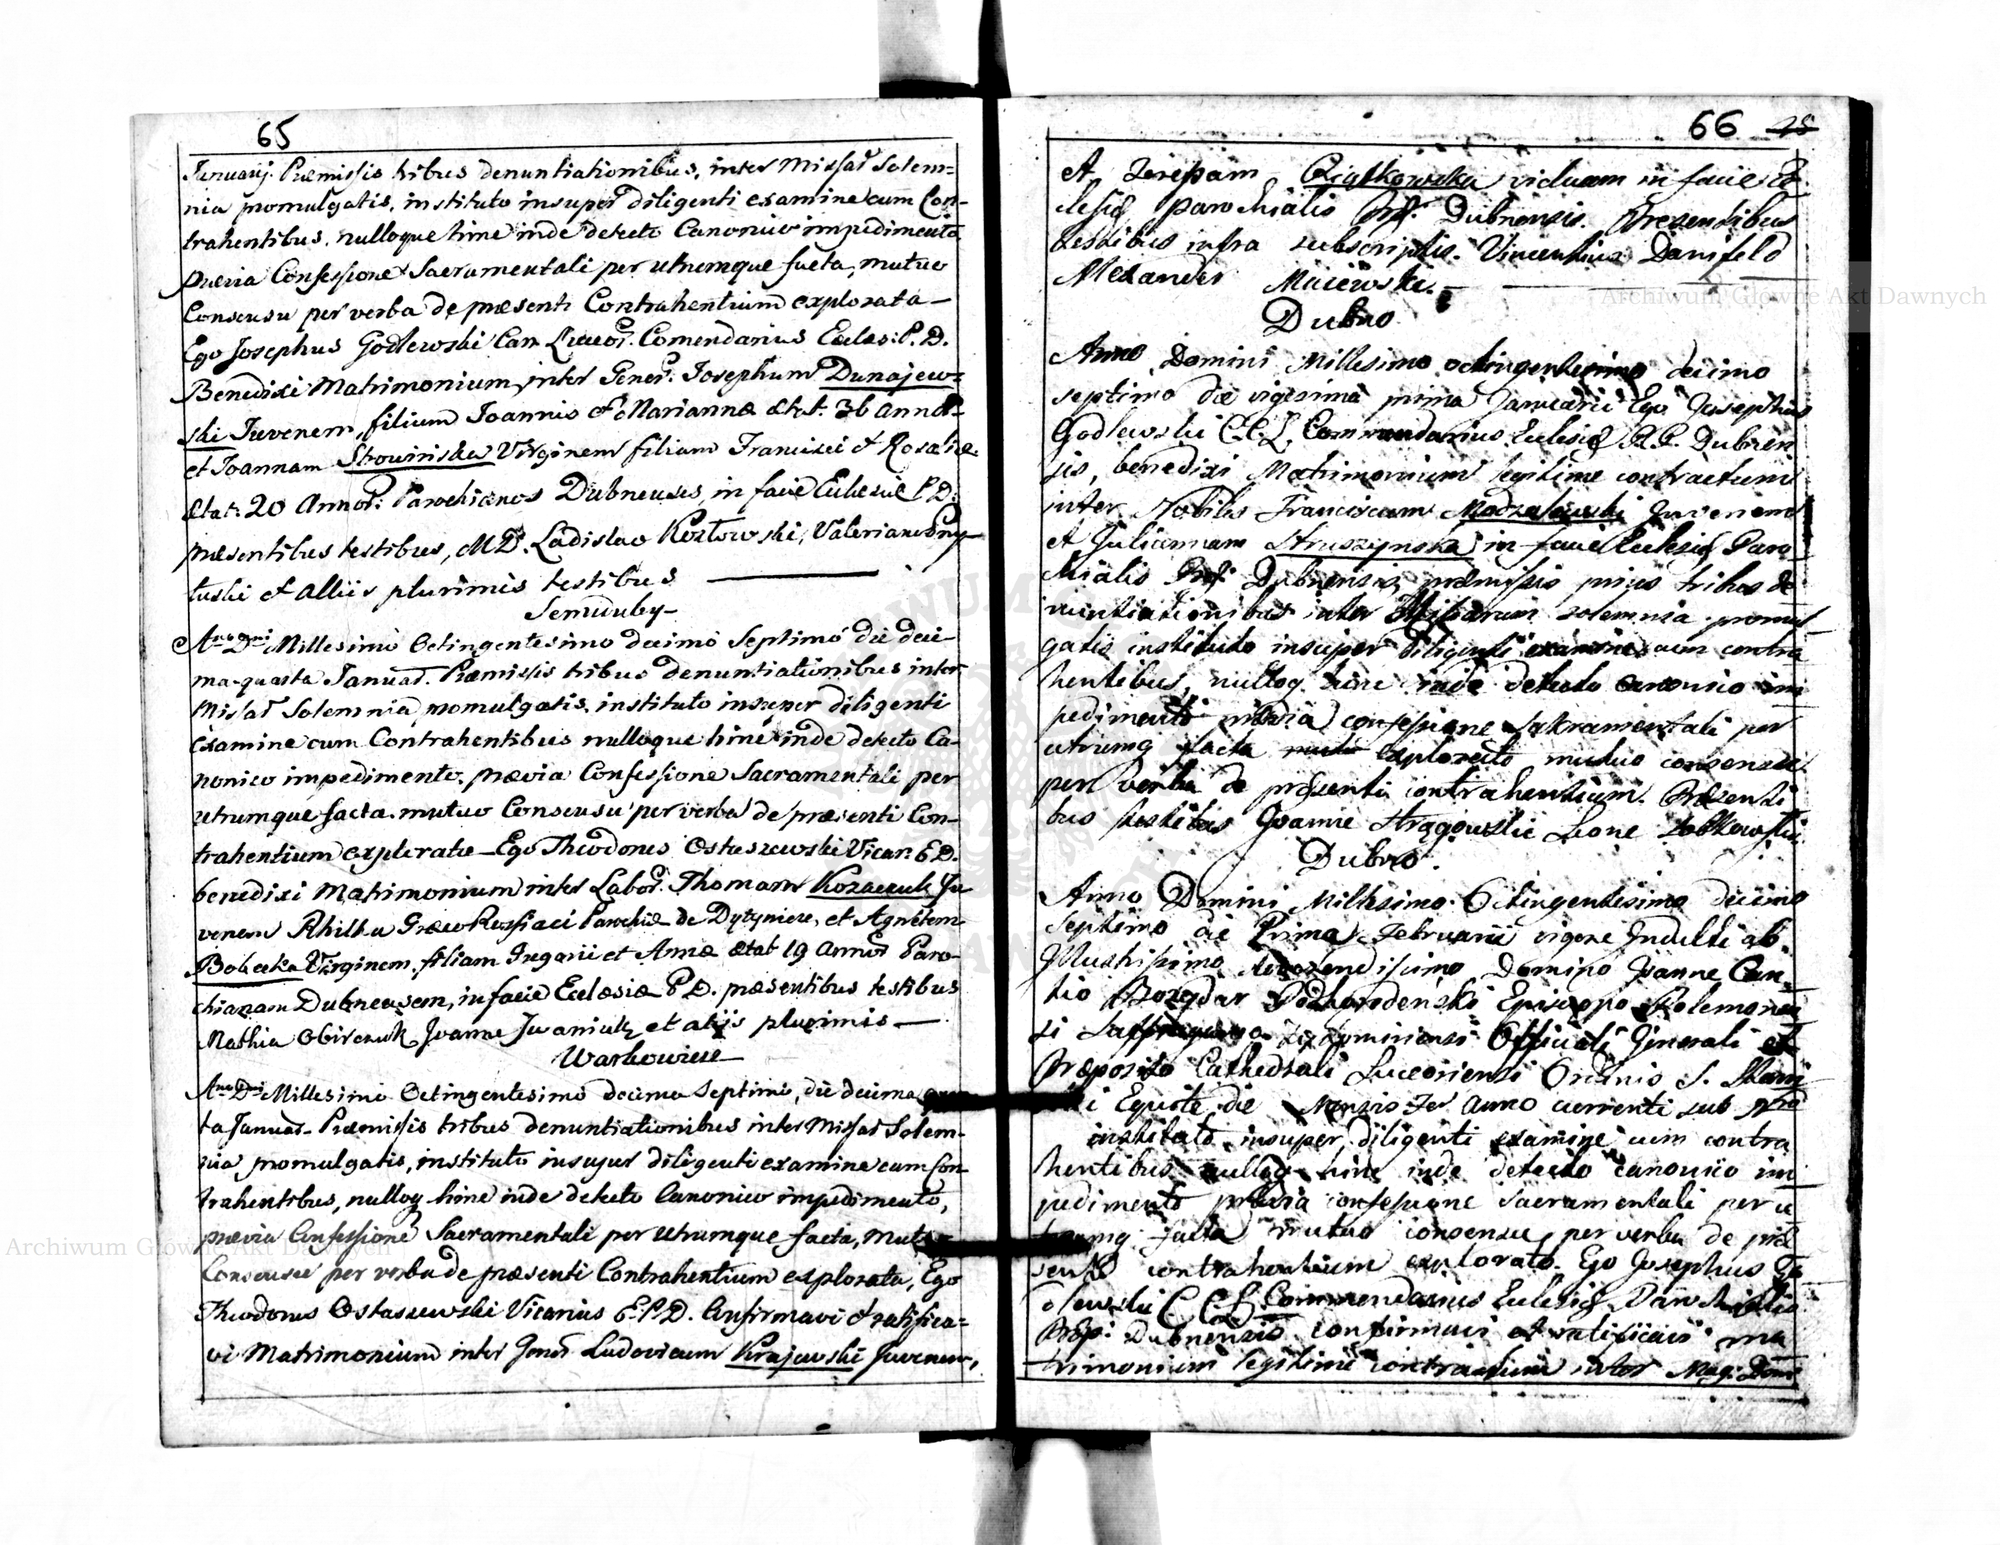 65
Januarij. Præmissis tribus denuntiationibus, inter Missar Solem-
nia promulgatis, instituto insuper diligenti examine cum Con-
trahentibus, nulloque hinc inde detecto Canonico impedimento,
prævia Confessione Sacramentali per utrumque facta, mutuo
Consensu per verba de præsenti Contrahentium explorata—
Ego Josephus Godlewski Can. Luceor. Comendarius Eccles: P. D.
Benedixi Matrimonium, inter Gener. Josephum Dunajew-
ski Juvenem, filium Joannis et Mariannæ ætat. 36 annor-
et Joannam Słowińska Virginem filiam Francisci et Rosaliæ
ætat: 20 Annor. Parochianos Dubnenses, in facie Ecclesiæ P. D.
præsentibus testibus, M D. Ladislao Kozłowski, Valeriano
et alliis plurimis testibus
Semiduby
Ano Dni Millesimo Octingentesimo decimo Septimo die deci-
ma quarta Januar. Præmissis tribus denuntiationibus inter
Missar Solemnia promulgatis, instituto insuper diligenti
Examine cum Contrahentibus nulloque hinc inde detecto Ca-
nonico impedimento, prævia Confessione Sacramentali per
utrumque facta, mutuo Consensu per verba de præsenti Con-
trahentium explorato — Ego Theodorus Ostaszewski Vicar. E D.
benedixi Matrimonium inter Labor. Thomam Kozaczuk Ju-
venem Græco Parochiæ de et Agnetem
Bobecka Virginem, filiam Gregorii et Annæ ætat 19 annor Paro-
chianam Dubnensem, in facie Ecclesiæ P D. præsentibus testibus
Mathia Joanne Iwaniuk et aliis plurimis —
Warkowicze
Ano Dni Millesimo Octingentesimo decimo Septimo, die decima
ta Januar. Præmissis tribus denuntiationibus inter Missar Solem-
nia promulgatis, instituto insuper diligenti examine cum Con-
trahentibus, nulloq hinc inde detecto Canonico impedimento,
prævia Confessione Sacramentali per utrumque facta,
Consensu per verba de præsenti Contrahentium explorata, Ego
Theodorus Ostaszewski Vicarius E. P. D. Confirmavi et ratifica-
vi Matrimonium inter Gener Ludovicum Krajewski Juvenem,
66
Et viduam in facie Ec
clesiæ parochialis Dubnensis. Presentibus
testibus infra subscriptis. Vincentius Danifeld
Alexander Maiewski.
Dubno
Anno Domini Millesimo octingentesimo decimo
septimo die vigesima prima Januarii Ego Josephus
Godlewski C. C. L. Commendarius Ecclesiæ Dubnen
sis, benedixi Matrimonium legitime contractum
inter Nobiles Franciscum Juvenem
et Juliannam Struszynska in facie Ecclesiæ Paro
chialis Dubnensis, præmissis prius tribus de
nuntiationibus inter Missarum solemnia promul
gatis instituto insuper diligenti examine cum contra
hentibus, nulloq hinc inde detecto canonico im
pedimento prævia confessione sakramentali per
utrumq facta explorato mutuo consensu
per verba de presenti contrahentium. Presenti
bus testibus Joanne Leone
Dubno.
Anno Domini Millesimo Octingentesimo decimo
Septimo die Prima Februarii vigore Indulti ab
Illustrissimo Reverendissimo Domino Joanne Can-
tio Episcopo
Officiali Generali et
Præposito Cathedrali Luceoriensi Ordinis S.
Equite die Anno currenti sub
instituto insuper diligenti examine cum contra
hentibus nulloq hinc inde detecto canonico im
pedimento prævia confessione sacramentali per u
trumq facta mutuo consensu per verba de præ
senti contrahentium explorato. Ego Josephus Go
dlewski C. C. L. Commendarius Ecclesiæ Parochialis
Dubnensis confirmavi et ratificavi ma
trimonium legitime contractum inter Mag: Dom
Archiwum Główne Akt Dawnych
Archiwum Główne Akt Dawnych